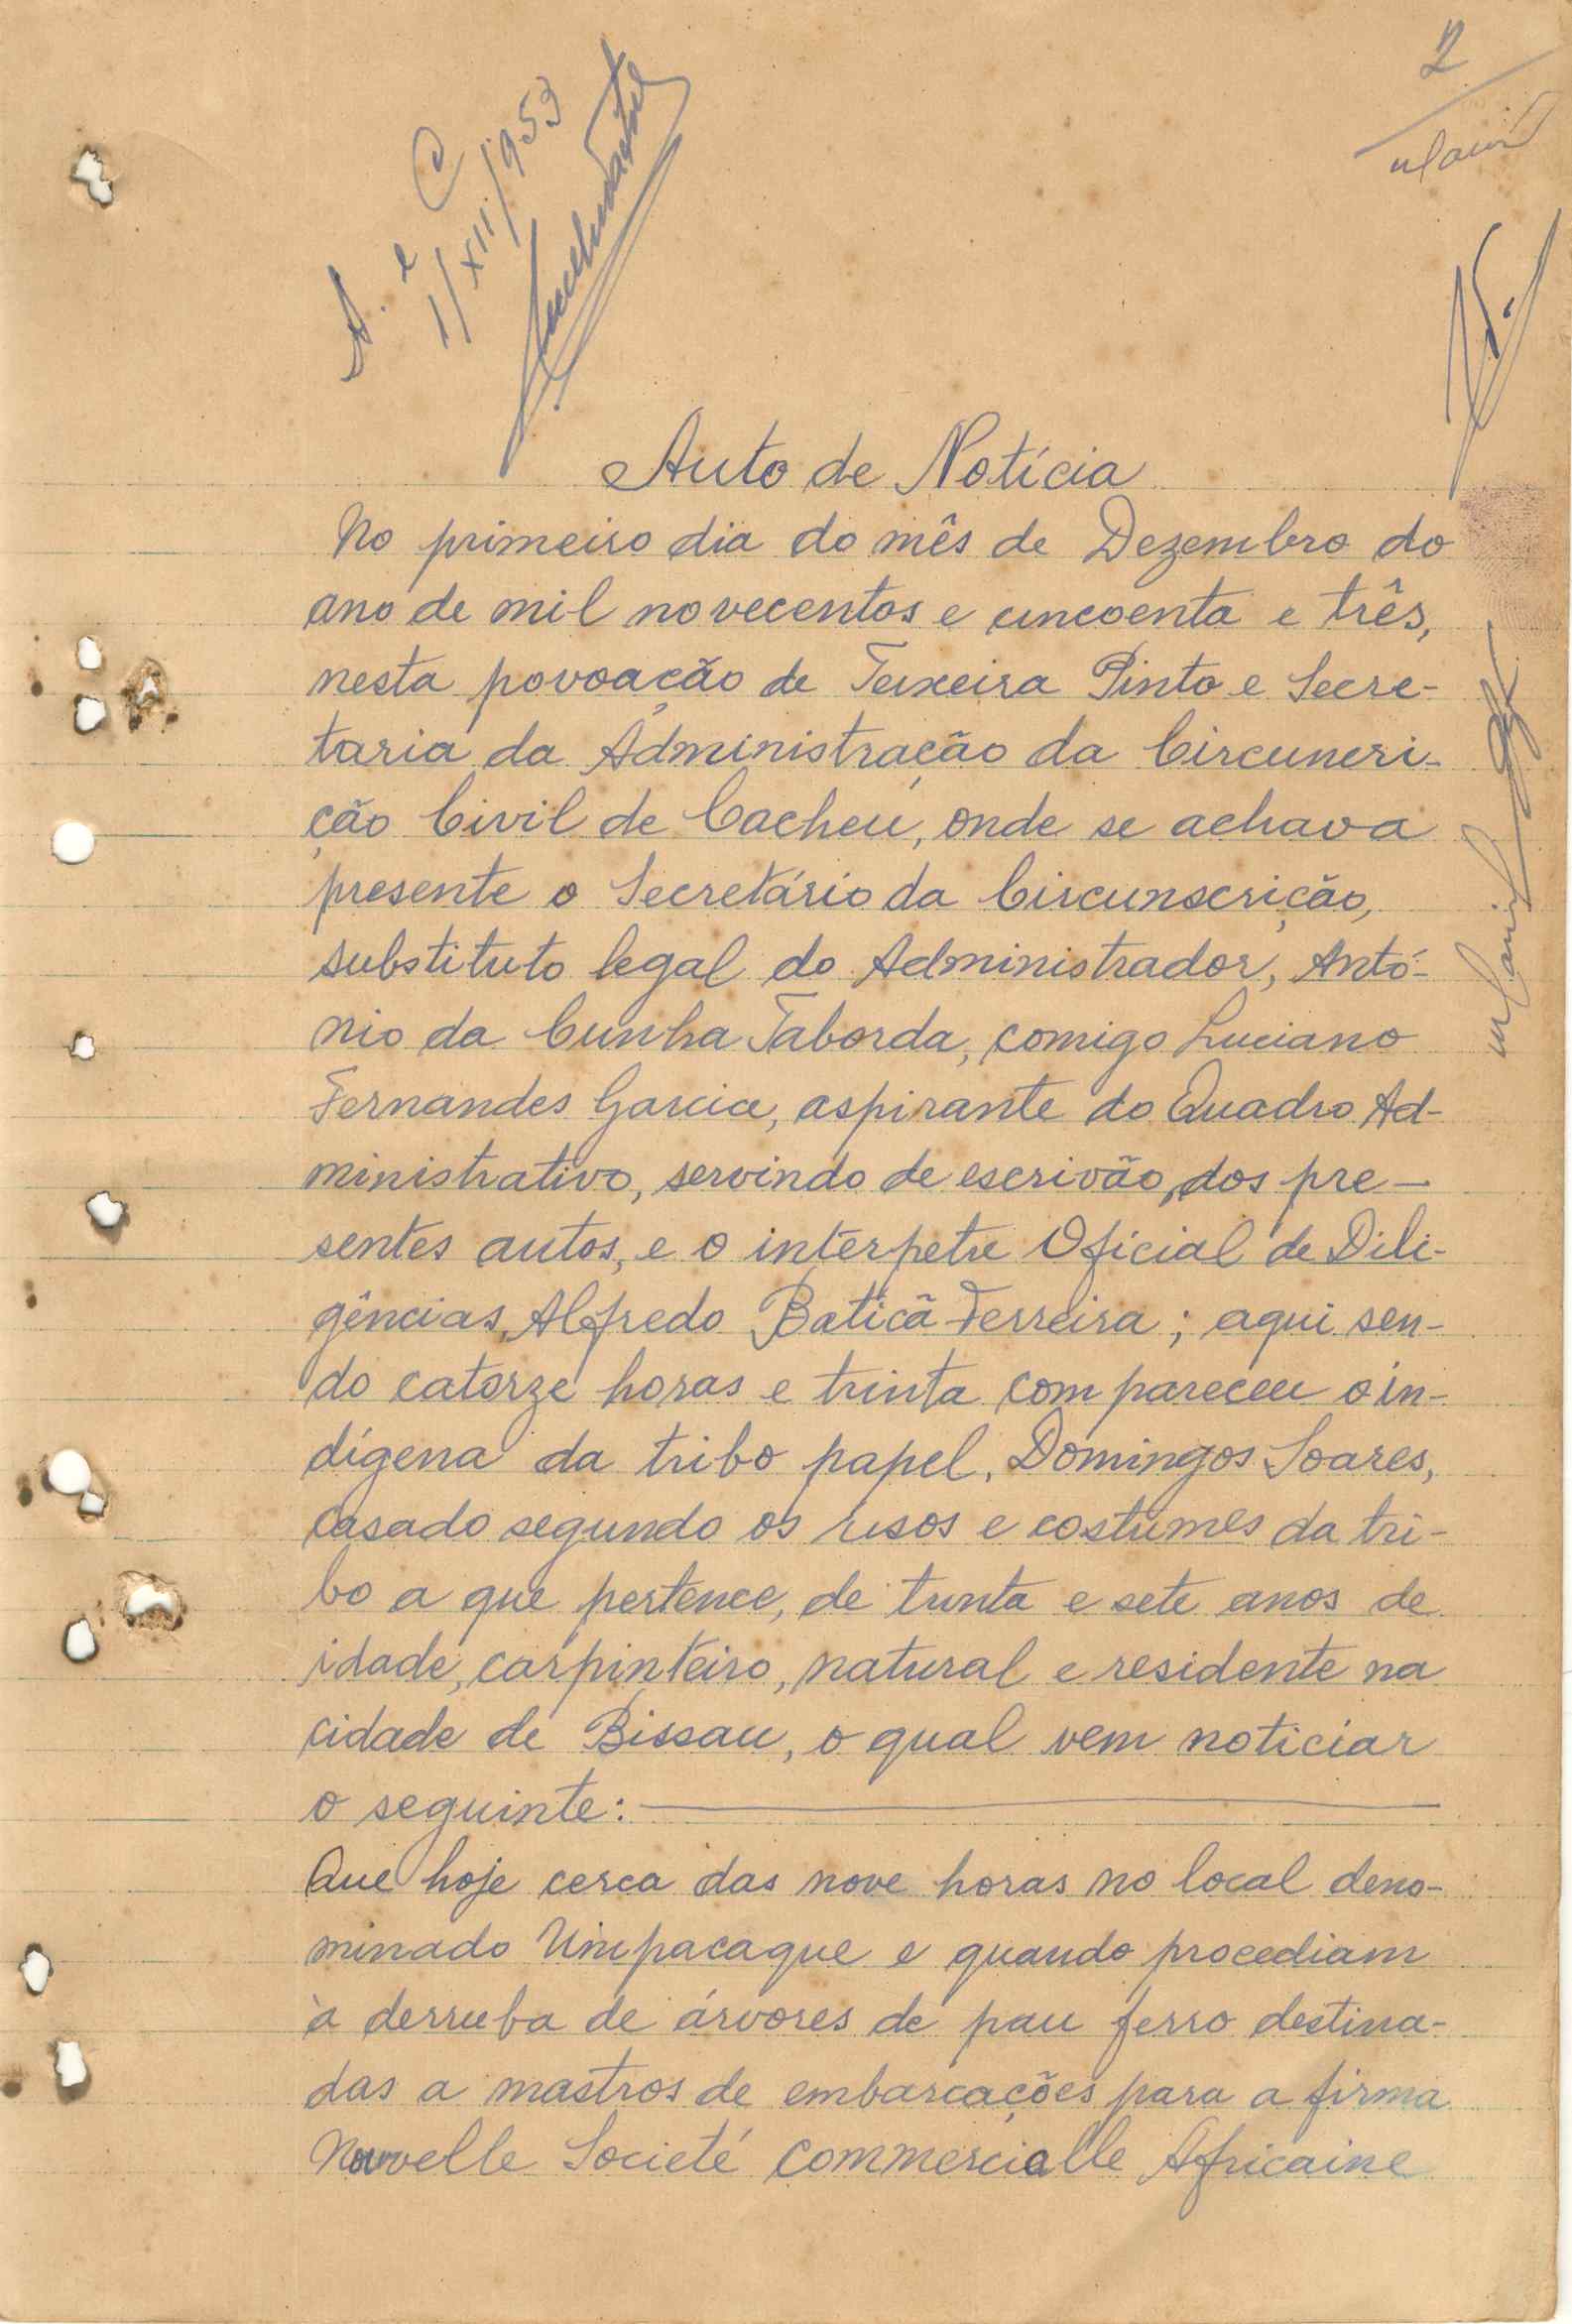 2
A. e C
1/XII/953
Auto de Notícia
No primeiro dia do mês de Dezembro do
ano de mil novecentos e cincoenta e três,
nesta povoação de Teixeira Pinto e Secre-
taria da Administração da Circunscri-
ção Civil de Cacheu, onde se achava
presente o Secretário da Circunscrição,
substituto legal do Administrador, Antó-
nio da Cunha Taborda, comigo Luciano
Fernandes Garcia, aspirante do Quadro Ad-
ministrativo, servindo de escrivão dos pre-
sentes autos, e o intérpetre Oficial de Dili-
gências, Alfredo Baticã Ferreira; aqui sen-
do catorze horas e trinta compareceu o in-
dígena da tribo papel, Domingos Soares,
casado segundo os usos e costumes da tri-
bo a que pertence, de trinta e sete anos de
idade, carpinteiro, natural e residente na
cidade de Bissau, o qual vem noticiar
o seguinte:
Que hoje cerca das nove horas no local deno-
minado Umpacaque e quando procediam
à derruba de árvores de pau ferro destina-
das a mastros de embarcações para a firma
Nouvelle Societé Commercialle Africaine